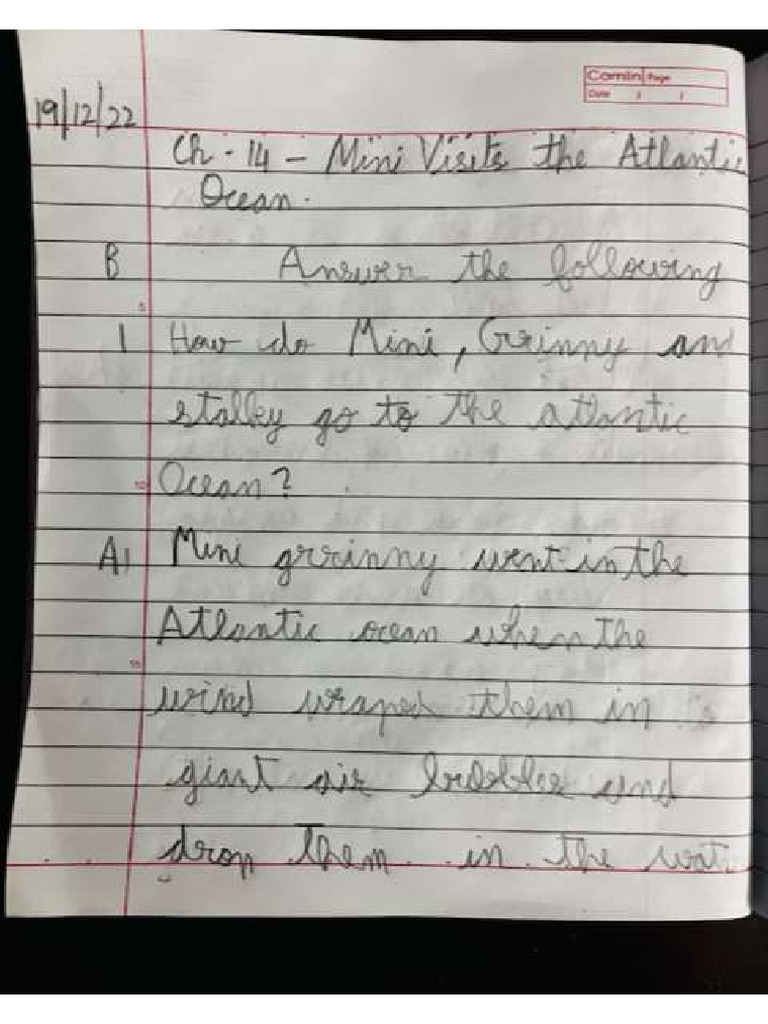 Camlin Page
Date / /
19/12/22
Ch - 14 - Mini Visits the Atlantic
Ocean.
B Answer the following
5
1 How do Mini, Grinny and
stalky go to the atlantic
10 Ocean?
A1 Mini grrinny went in the
Atlantic ocean when the
15
wind wraped them in
giant air bubbles and
drop them in the wat